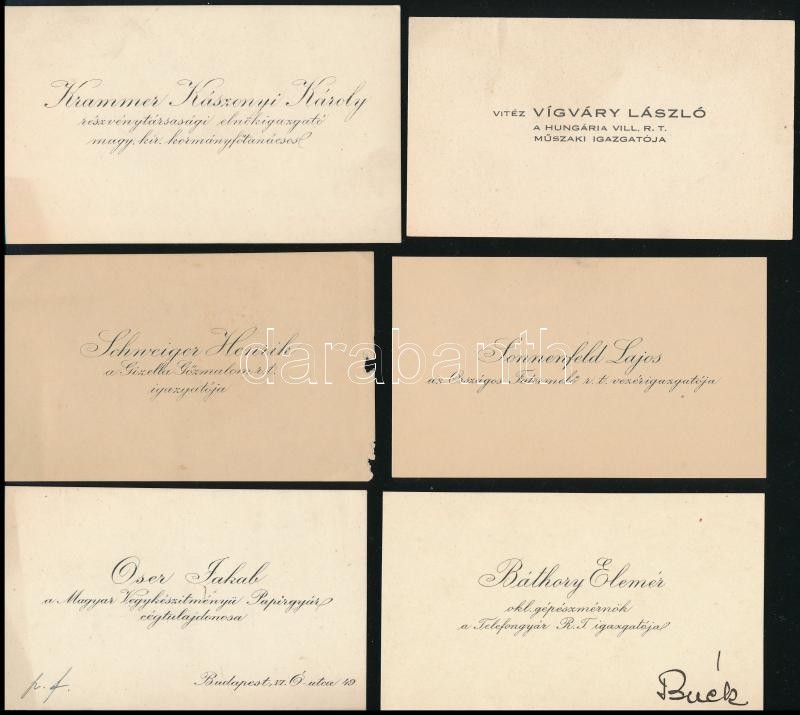 Krammer Kászonyi Károly
részvénytársasági elnökigazgató
magy. kir. kormányfőtanácsos
VITÉZ VÍGVÁRY LÁSZLÓ
A HUNGÁRIA VILL. R. T.
MŰSZAKI IGAZGATÓJA
Schweiger Henrik
a Gizella Gőzmalom r.t.
igazgatója
Sonnenfeld Lajos
az Országos Fatermelő r. t. vezérigazgatója
darabanth
Oser Jakab
a Magyar Vegykészítményü Papirgyár
cégtulajdonosa
Budapest, VI. Ó-utca 49
p. f.
Báthory Elemér
okl. gépészmérnök
a Telefongyár R. T. igazgatója